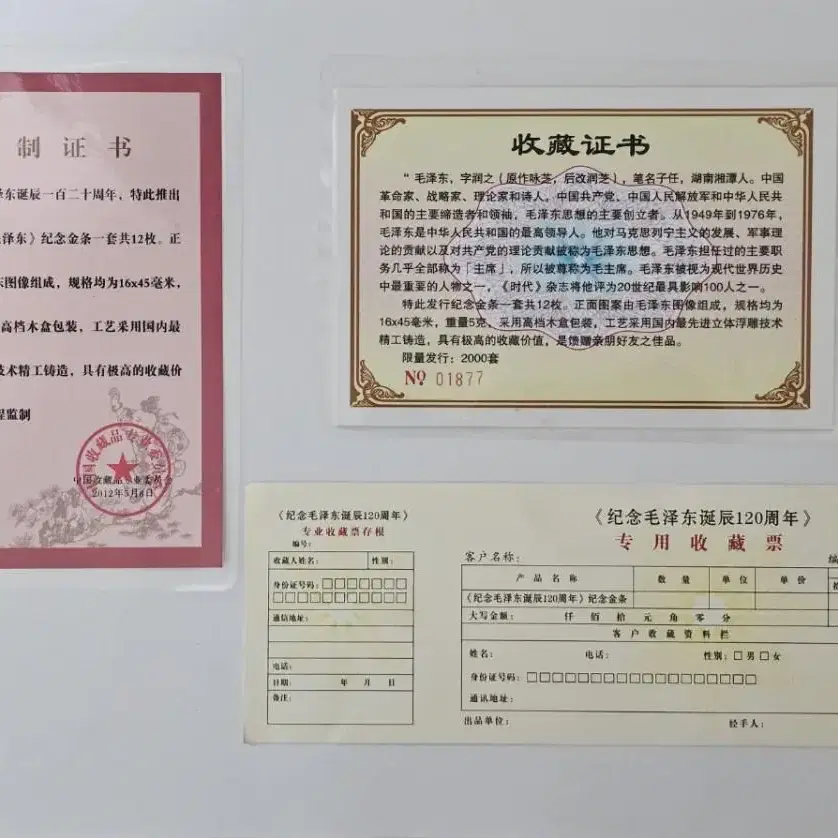 制证书
东诞辰一百二十周年，特此推出
泽东》纪念金条一套共12枚。正
东图像组成，规格均为16x45毫米，
高档木盒包装，工艺采用国内最
技术精工铸造，具有极高的收藏价
监制
中国收藏品专业委员会
2012年5月8日
收藏证书
“毛泽东，字润之（原作咏芝，后改润芝），笔名子任，湖南湘潭人。中国
革命家、战略家、理论家和诗人，中国共产党、中国人民解放军和中华人民共
和国的主要缔造者和领袖，毛泽东思想的主要创立者。从1949年到1976年，
毛泽东是中华人民共和国的最高领导人。他对马克思列宁主义的发展、军事理
论的贡献以及对共产党的理论贡献被称为毛泽东思想。毛泽东担任过的主要职
务几乎全部称为「主席」，所以被尊称为毛主席。毛泽东被视为现代世界历史
中最重要的人物之一，《时代》杂志将他评为20世纪最具影响100人之一。
特此发行纪念金条一套共12枚。正面图案由毛泽东图像组成，规格均为
16x45毫米，重量5克，采用高档木盒包装，工艺采用国内最先进立体浮雕技术
精工铸造，具有极高的收藏价值，是馈赠亲朋好友之佳品。
限量发行：2000套
№ 01877
《纪念毛泽东诞辰120周年》
专业收藏票存根
编号：
收藏人姓名： 性别：
身份证号码：□□□□□□□
□□□□□□□□□□□
通信地址：
电话：
日期： 年 月 日
备注：
《纪念毛泽东诞辰120周年》
专用收藏票
客户名称： 编
产品名称 数量 单位 单价
《纪念毛泽东诞辰120周年》纪念金条
大写金额： 仟 佰 拾 元 角 零 分
客户收藏资料栏
姓名： 电话： 性别：□男□女
身份证号码：□□□□□□□□□□□□□□□□□□
通讯地址：
出品单位： 经手人：